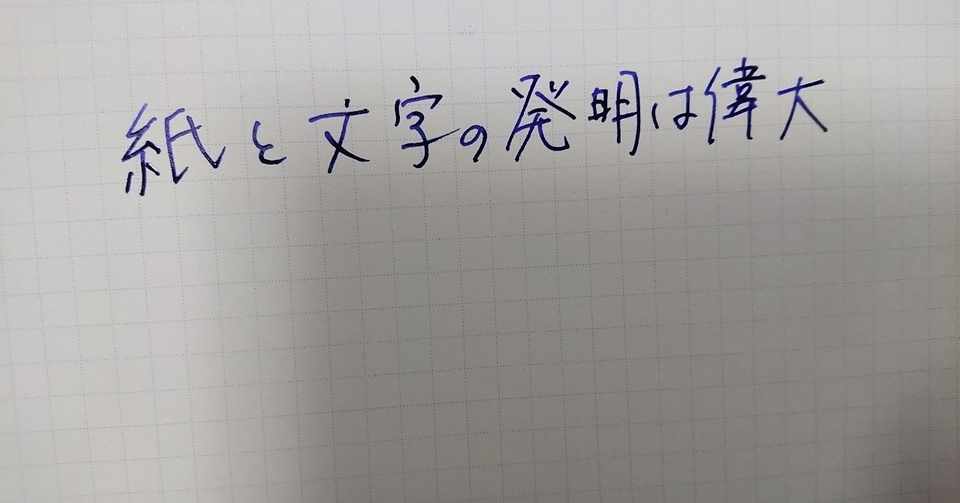 紙と文字の発明は偉大